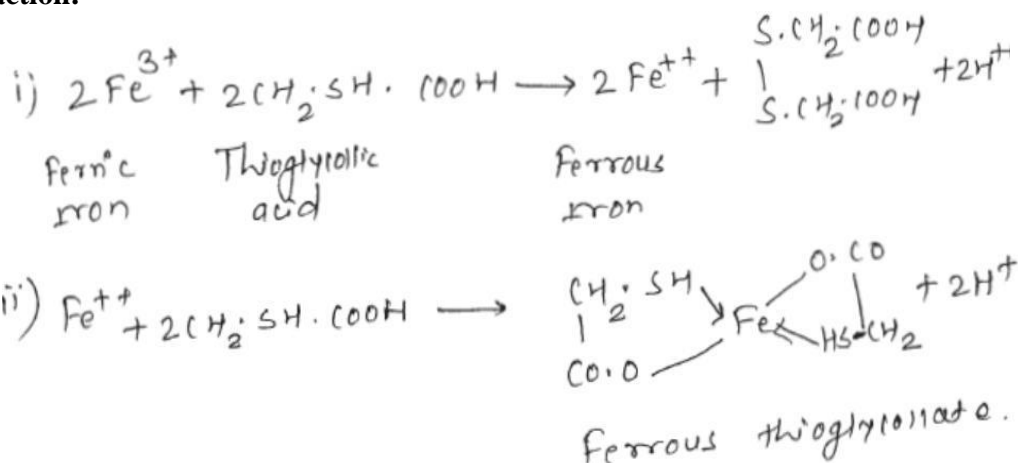 action:
i) 2Fe³⁺ + 2CH₂.SH.COOH → 2Fe⁺⁺ + S.CH₂.COOH | S.CH₂.COOH + 2H⁺
Ferric iron
Thioglycollic acid
Ferrous iron
ii) Fe⁺⁺ + 2CH₂.SH.COOH →
CH₂.SH
CO.O
Fe
O.CO
HS-CH₂
+ 2H⁺
Ferrous thioglycollate.